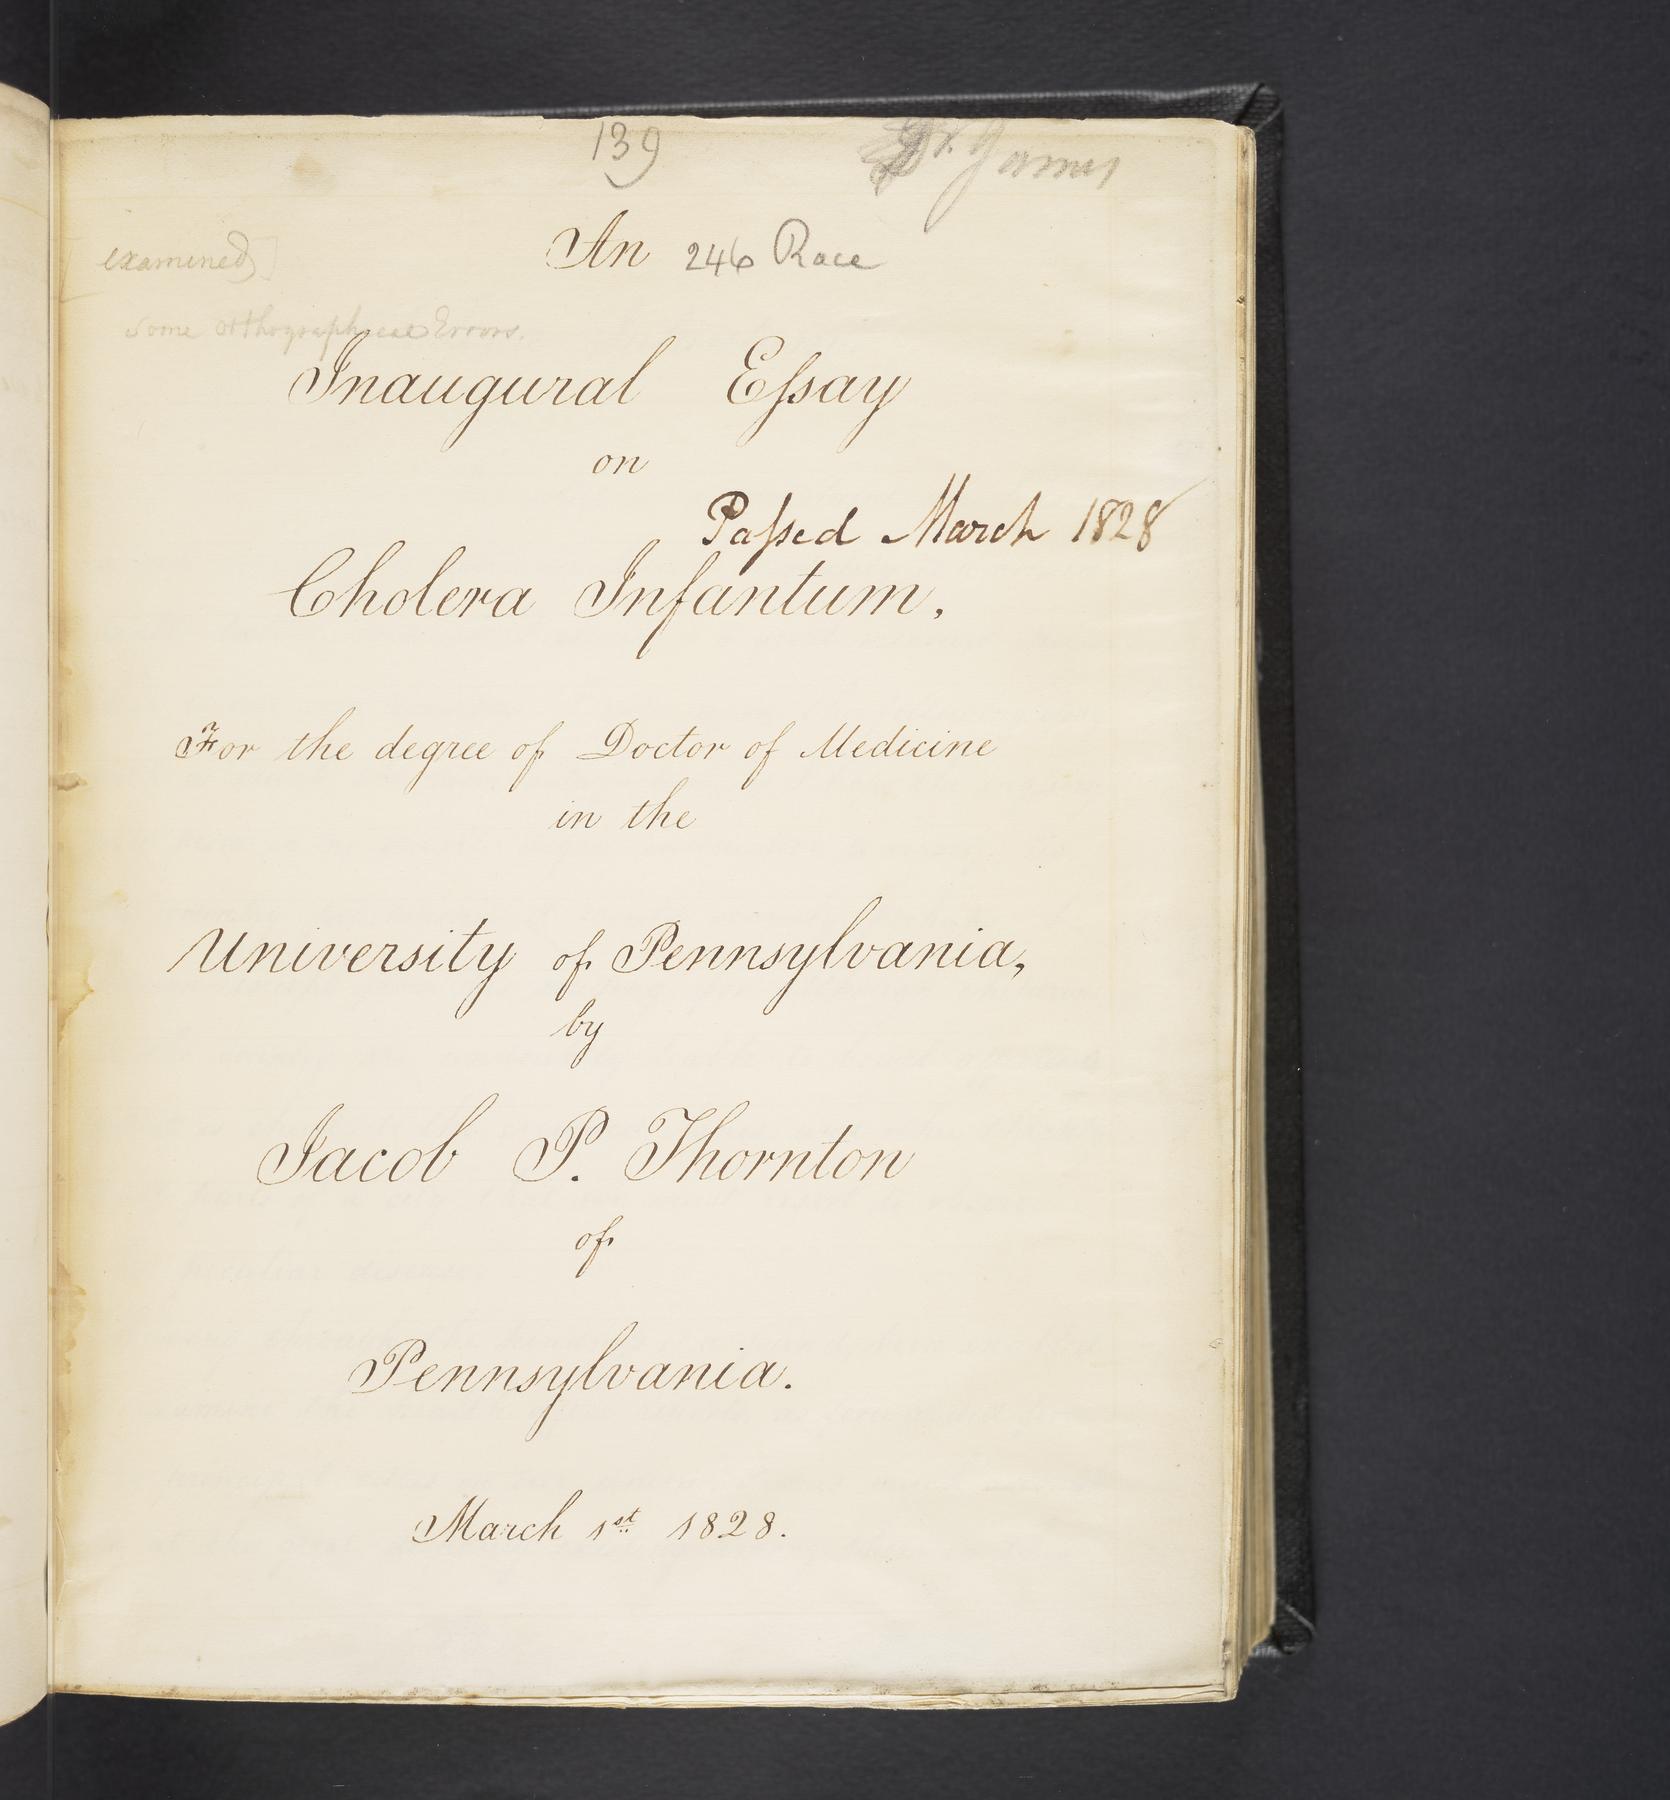 139
Dr. James
An 246 Race
examined
Some Orthographical Errors.
Inaugural Eſsay
on
Paſsed March 1828
Cholera Infantum,
For the degree of Doctor of Medicine
in the
University of Pennsylvania,
by
Jacob P. Thornton
of
Pennsylvania.
March 1st 1828.